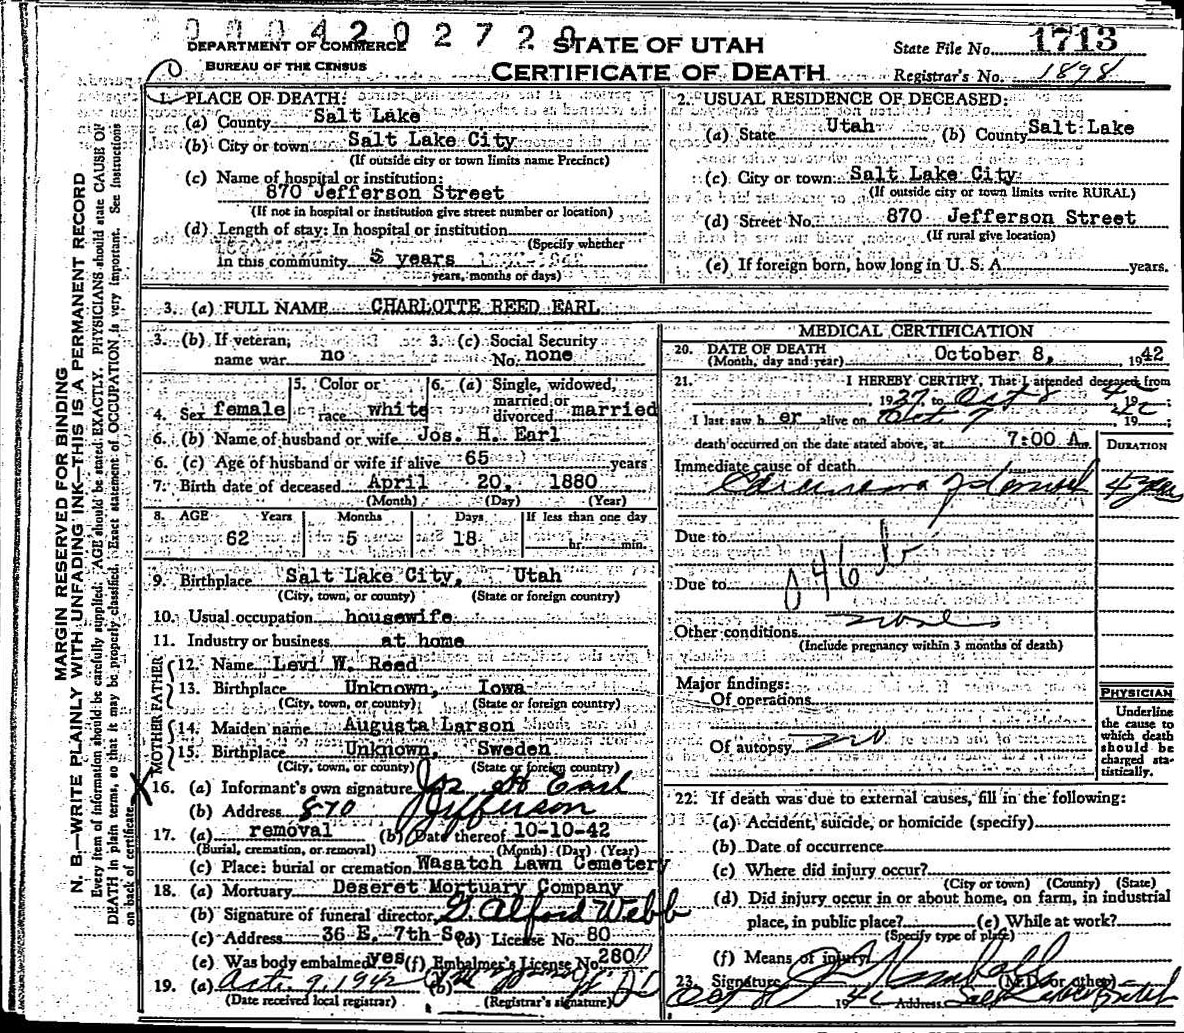 0004202720
DEPARTMENT OF COMMERCE
BUREAU OF THE CENSUS
STATE OF UTAH
CERTIFICATE OF DEATH
State File No. 1713
Registrar's No. 1898
MARGIN RESERVED FOR BINDING
N. B.—WRITE PLAINLY WITH UNFADING INK—THIS IS A PERMANENT RECORD
Every item of information should be carefully supplied. AGE should be stated EXACTLY. PHYSICIANS should state CAUSE OF
DEATH in plain terms, so that it may be properly classified. Exact statement of OCCUPATION is very important. See Instructions
on back of certificate.
1. PLACE OF DEATH:
(a) County Salt Lake
(b) City or town Salt Lake City
(If outside city or town limits name Precinct)
(c) Name of hospital or institution:
870 Jefferson Street
(If not in hospital or institution give street number or location)
(d) Length of stay: In hospital or institution
(Specify whether
In this community 5 years
years, months or days)
2. USUAL RESIDENCE OF DECEASED:
(a) State Utah (b) County Salt Lake
(c) City or town: Salt Lake City
(If outside city or town limits write RURAL)
(d) Street No. 870 Jefferson Street
(If rural give location)
(e) If foreign born, how long in U. S. A. years.
3. (a) FULL NAME CHARLOTTE REED EARL
3. (b) If veteran, name war no
3. (c) Social Security No. none
4. Sex female
5. Color or race white
6. (a) Single, widowed, married or divorced married
6. (b) Name of husband or wife Jos. H. Earl
6. (c) Age of husband or wife if alive 65 years
7. Birth date of deceased April 20, 1880
(Month) (Day) (Year)
8. AGE Years Months Days If less than one day
62 5 18 hr. min.
9. Birthplace Salt Lake City, Utah
(City, town, or county) (State or foreign country)
10. Usual occupation housewife
11. Industry or business at home
FATHER
12. Name Levi W. Reed
13. Birthplace Unknown, Iowa
(City, town, or county) (State or foreign country)
MOTHER
14. Maiden name Augusta Larson
15. Birthplace Unknown, Sweden
(City, town, or county) (State or foreign country)
X
16. (a) Informant's own signature Jos H Earl
(b) Address 870 Jefferson
17. (a) removal (b) Date thereof 10-10-42
(Burial, cremation, or removal) (Month) (Day) (Year)
(c) Place: burial or cremation Wasatch Lawn Cemetery
18. (a) Mortuary Deseret Mortuary Company
(b) Signature of funeral director G. Alford Webb
(c) Address 36 E. 7th So. (d) License No. 80
(e) Was body embalmed yes (f) Embalmer's License No. 280
19. (a) Oct. 9, 1942 (b)
(Date received local registrar) (Registrar's signature)
MEDICAL CERTIFICATION
20. DATE OF DEATH
(Month, day and year) October 8, 1942
21. I HEREBY CERTIFY, That I attended deceased from
1937 to Oct 8 19
I last saw her alive on Oct 7 19 42;
death occurred on the date stated above, at 7:00 A m.
DURATION
Immediate cause of death
Carcinoma 4 years
Due to
Due to
Other conditions none
(Include pregnancy within 3 months of death)
Major findings:
Of operations
Of autopsy no
PHYSICIAN
Underline
the cause to
which death
should be
charged sta-
tistically.
22. If death was due to external causes, fill in the following:
(a) Accident, suicide, or homicide (specify)
(b) Date of occurrence
(c) Where did injury occur?
(City or town) (County) (State)
(d) Did injury occur in or about home, on farm, in industrial
place, in public place? (e) While at work?
(Specify type of place)
(f) Means of injury
23. Signature (M.D. or other)
Oct 1942 Address Salt Lake Utah